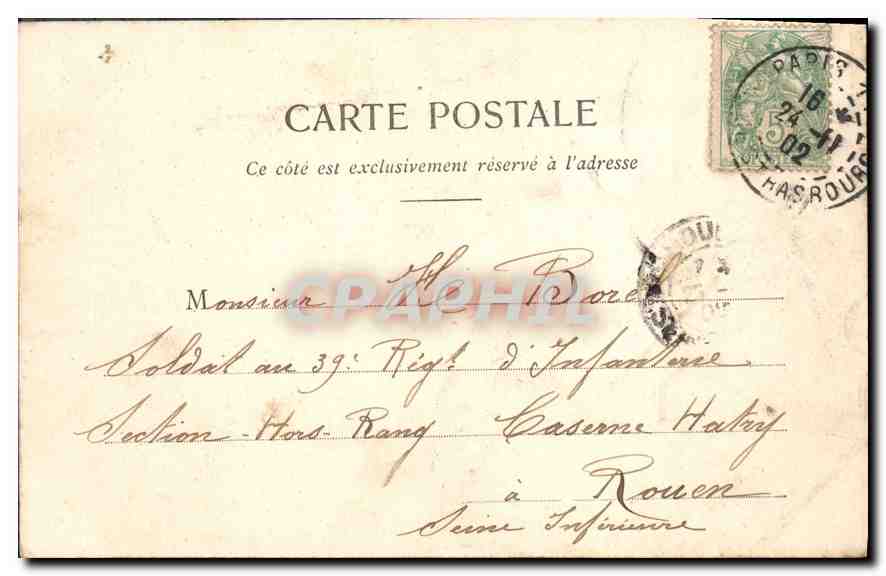 CARTE POSTALE
Ce côté est exclusivement réservé à l'adresse
PARIS
16
24 -11
02
STRASBOURG
5
Monsieur H Borel
Soldat au 39e Rigt d'Infanterie
Section-Hors-Rang Caserne Hatry
à Rouen
Seine Inférieure
CPAPHIL